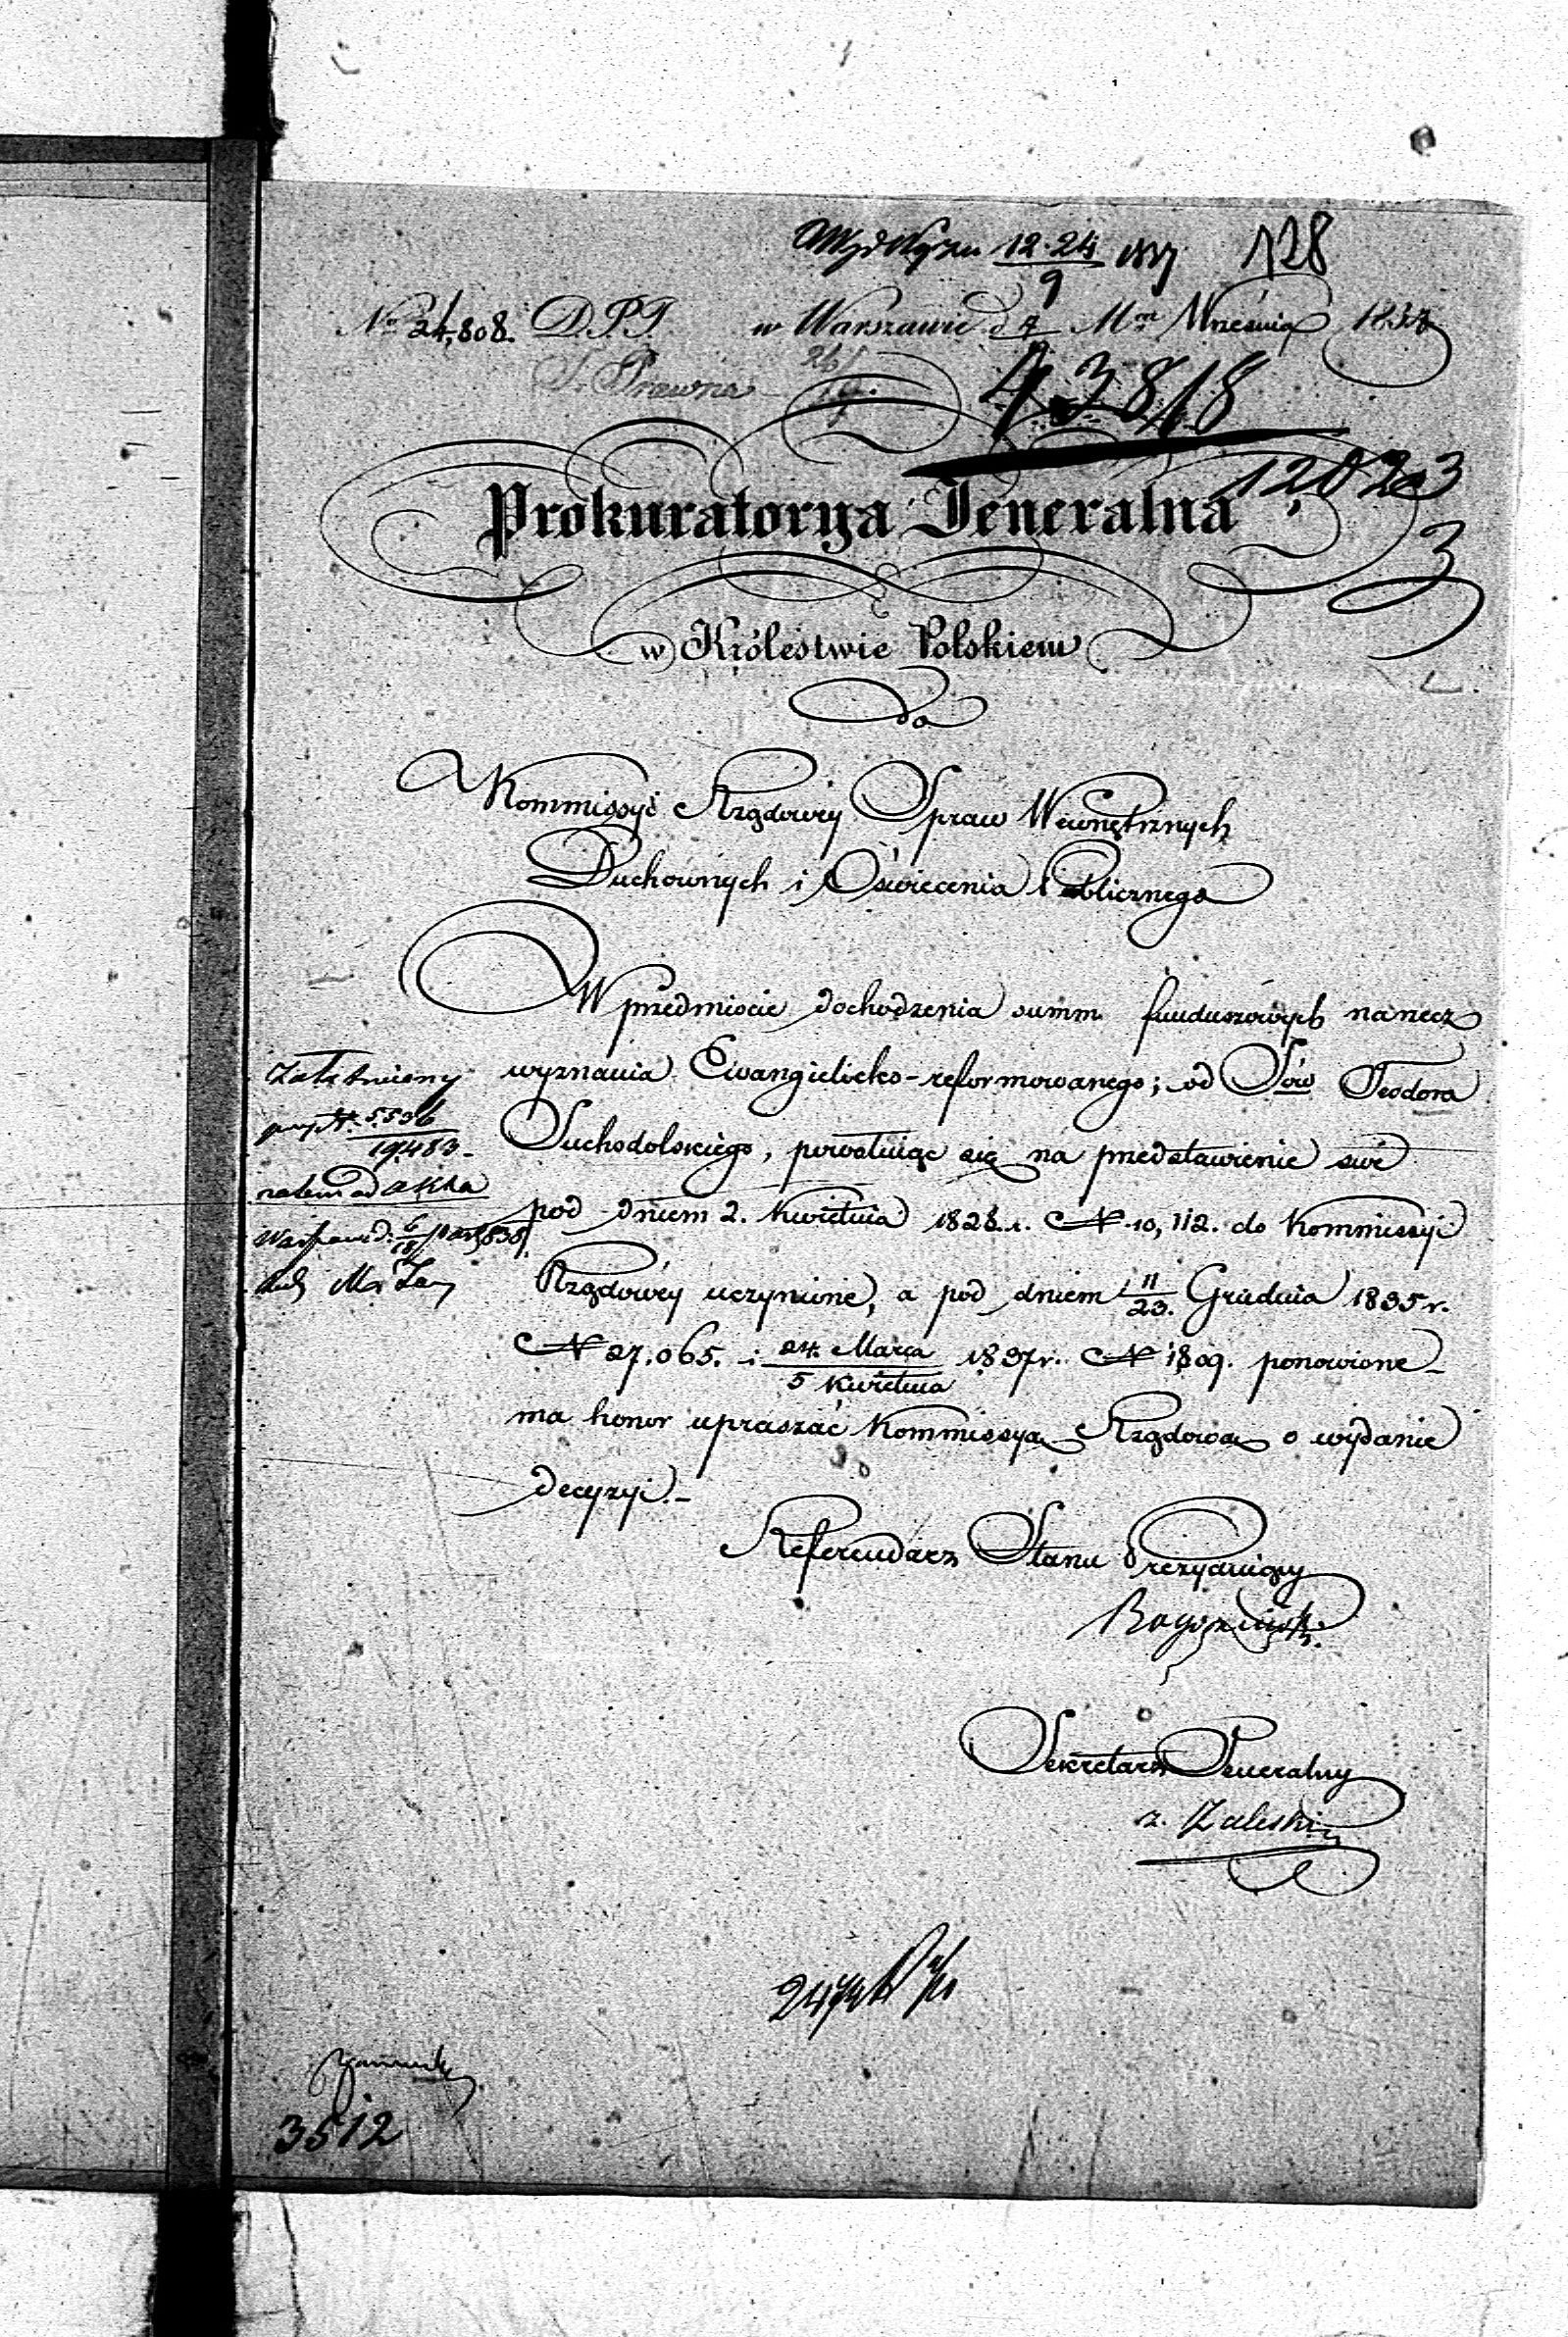 12·24
9
128
No 24,808. D.P.J. w Warszawie d. Mca Września 1837
S. Prawna
43818
12023
3
Prokuratorya Jeneralna
w Królestwie Polskiem
do
Kommissyi Rządowéy Spraw Wewnętrznych
Duchownych i Oświecenia Publicznego
W przedmiocie dochodzenia summ funduszowych na rzecz
wyznania Ewangielicko-reformowanego; od Sów Teodora
Suchodolskiego, powołuiąc się na przedstawienie swe
pod dniem 2. Kwietnia 1828 r. N 10,112. do Kommissyi
Rządowéy uczynione, a pod dniem 11/23. Grudnia 1835 r.
N 27,065. i 24. Marca / 5 Kwietnia 1837 r. N 1809. ponowione
ma honor upraszać Kommissyą Rządową o wydanie
decyzyi.-
Załatwiony
5536
19,483
Referendarz Stanu Prezyduiący
Sekretarz Jeneralny
z. Zaleski
3512